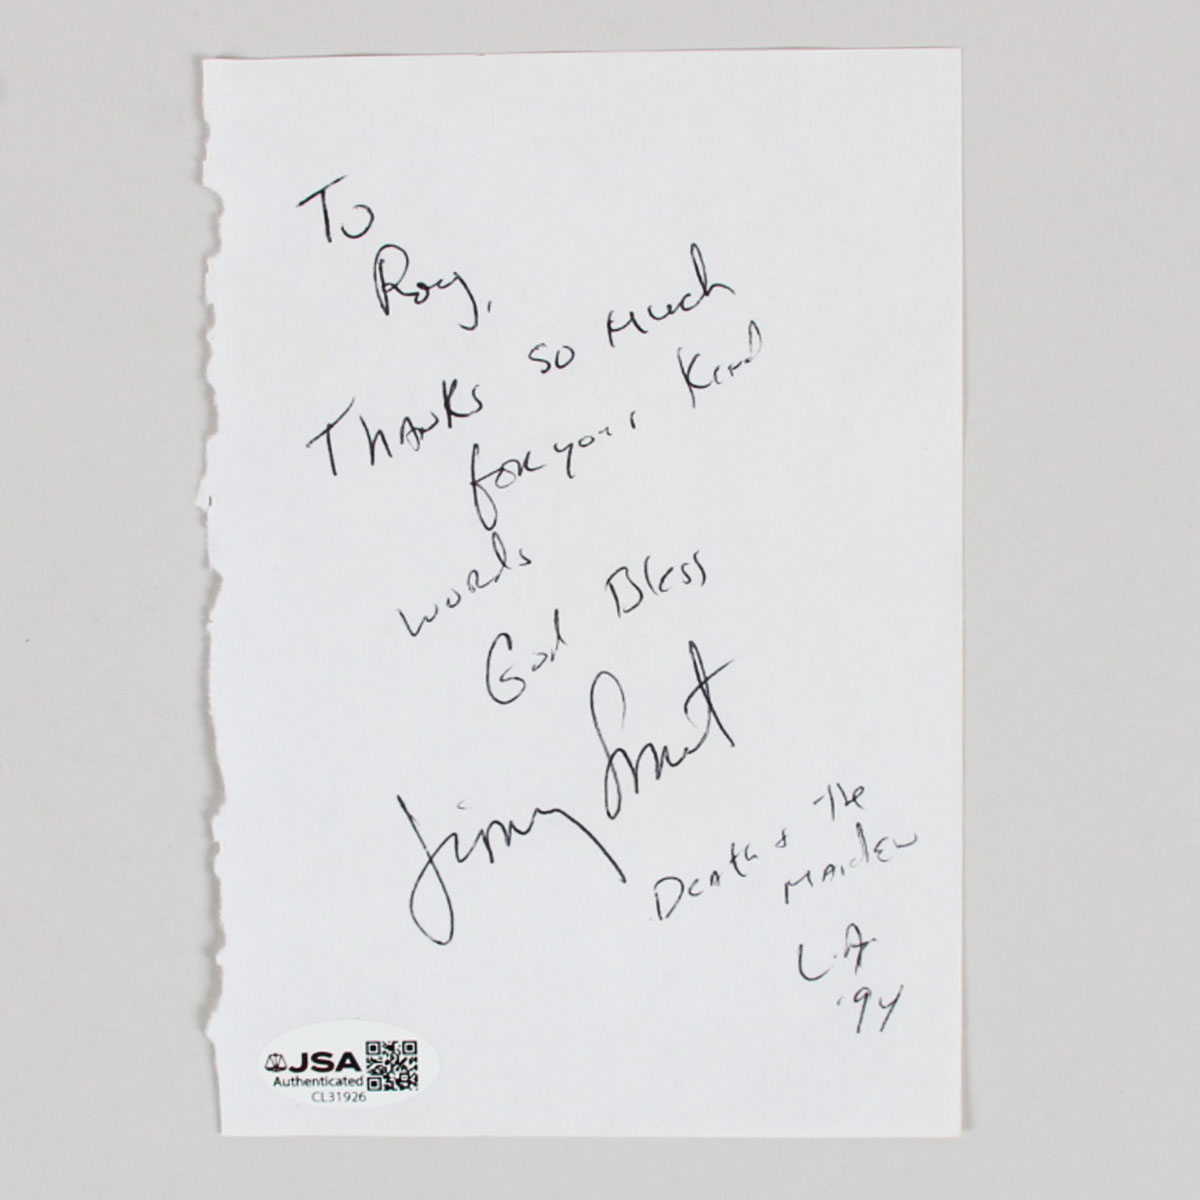 To
Roy,
Thanks so Much
for your Kind
words
God Bless
Jimmy Smits
Death & The
Maiden
L.A.
'94
JSA
Authenticated
CL31926